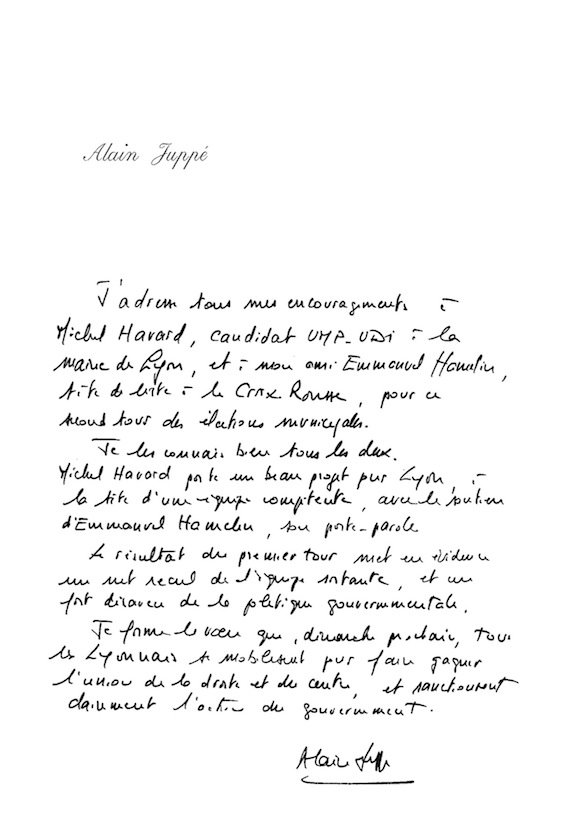 Alain Juppé
J'adresse tous mes encouragements à
Michel Havard, candidat UMP-UDI à la
mairie de Lyon, et à mon ami Emmanuel Hamelin,
tête de liste à la Croix Rousse, pour ce
second tour des élections municipales.
Je les connais bien tous les deux.
Michel Havard porte un beau projet pour Lyon, à
la tête d'une équipe compétente, avec le soutien
d'Emmanuel Hamelin, son porte-parole
Le résultat du premier tour met en évidence
un net recul de l'équipe sortante, et un
fort désaveu de la politique gouvernementale.
Je forme le vœu que, dimanche prochain, tous
les Lyonnais se mobilisent pour faire gagner
l'union de la droite et du centre, et sanctionnent
clairement l'action du gouvernement.
Alain Juppé